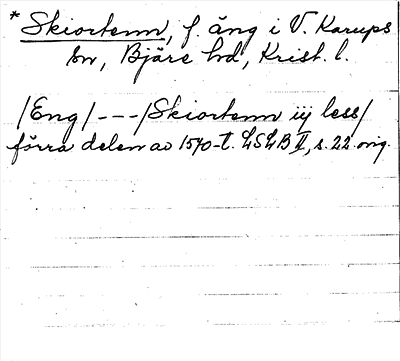 * Skiortenn, f. äng i V. Karups
sn, Bjäre hd, Krist. l.
/Eng/ --- /Skiortenn iij less/
förra delen av 1570-t. LSLB II, s. 22 orig.